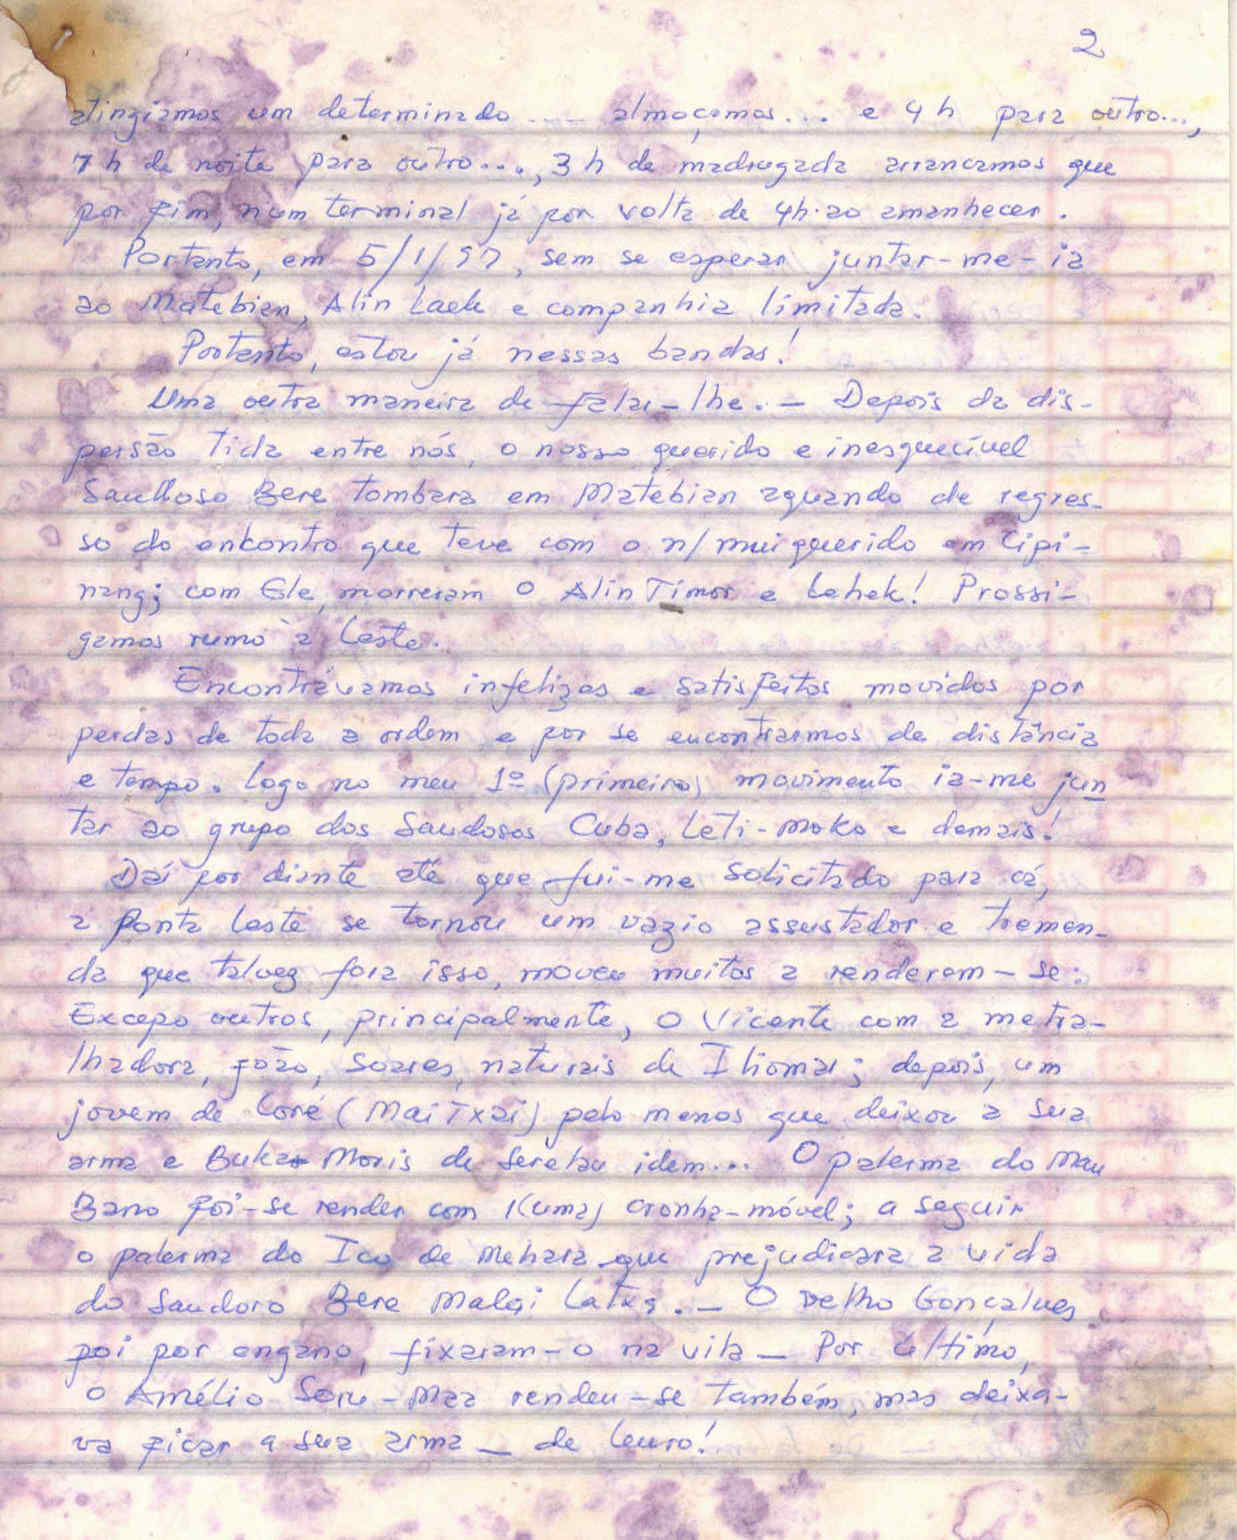 2
atingiamos um determinado ... almoçamos... e 4 h para outro...,
7 h de noite para outro..., 3 h de madrugada arrancamos que
por fim, num terminal já por volta de 4h. ao amanhecer.
Portanto, em 5/1/97, sem se esperar juntar-me-ia
ao Matebian, Alin Laek e companhia limitada.
Portanto, estou já nessas bandas!
Uma outra maneira de falar-lhe. - Depois da dis-
persão tida entre nós, o nosso querido e inesquecível
Saudoso Bere tombara em Matebian aquando de regres-
so do encontro que teve com o n/ mui querido em Cipi-
nang; com Ele, morreram o Alin Timor e Lehek! Prossi-
gamos rumo à Leste.
Encontrávamos infelizes e satisfeitos movidos por
perdas de toda a ordem e por se encontrarmos de distância
e tempo. Logo no meu 1º (primeiro) movimento ia-me jun
tar ao grupo dos Saudosos Cuba, Leti-Moko e demais!
Daí por diante até que fui-me solicitado para cá,
a Ponta Leste se tornou um vazio assustador e tremen-
da que talvez fora isso, moveu muitos a renderem-se:
Excepo outros, principalmente, o Vicente com a metra-
lhadora, João, Soares, naturais de Iliomar; depois, um
jovem de Loré (Mai Txai) pelo menos que deixou a sua
arma e Buka Moris de Serelau idem... O palerma do Mau
Bano foi-se render com 1(uma) cronha-móvel; a seguir
o palerma do Ico de Mehara que prejudicara a vida
do Saudoso Bere Malai Latxa. - O Delho Gonçalves
foi por engano, fixaram-o na vila - Por último,
o Amélio Soru-Maa rendeu-se também, mas deixa-
va ficar a sua arma - de Leuro!